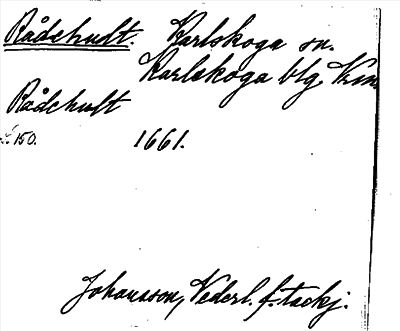 Rådehult. Karlskoga sn.
Karlskoga blg. Vrm.
Rådehult
f. 150. 1661.
Johansson, Vederl. f. tackj.